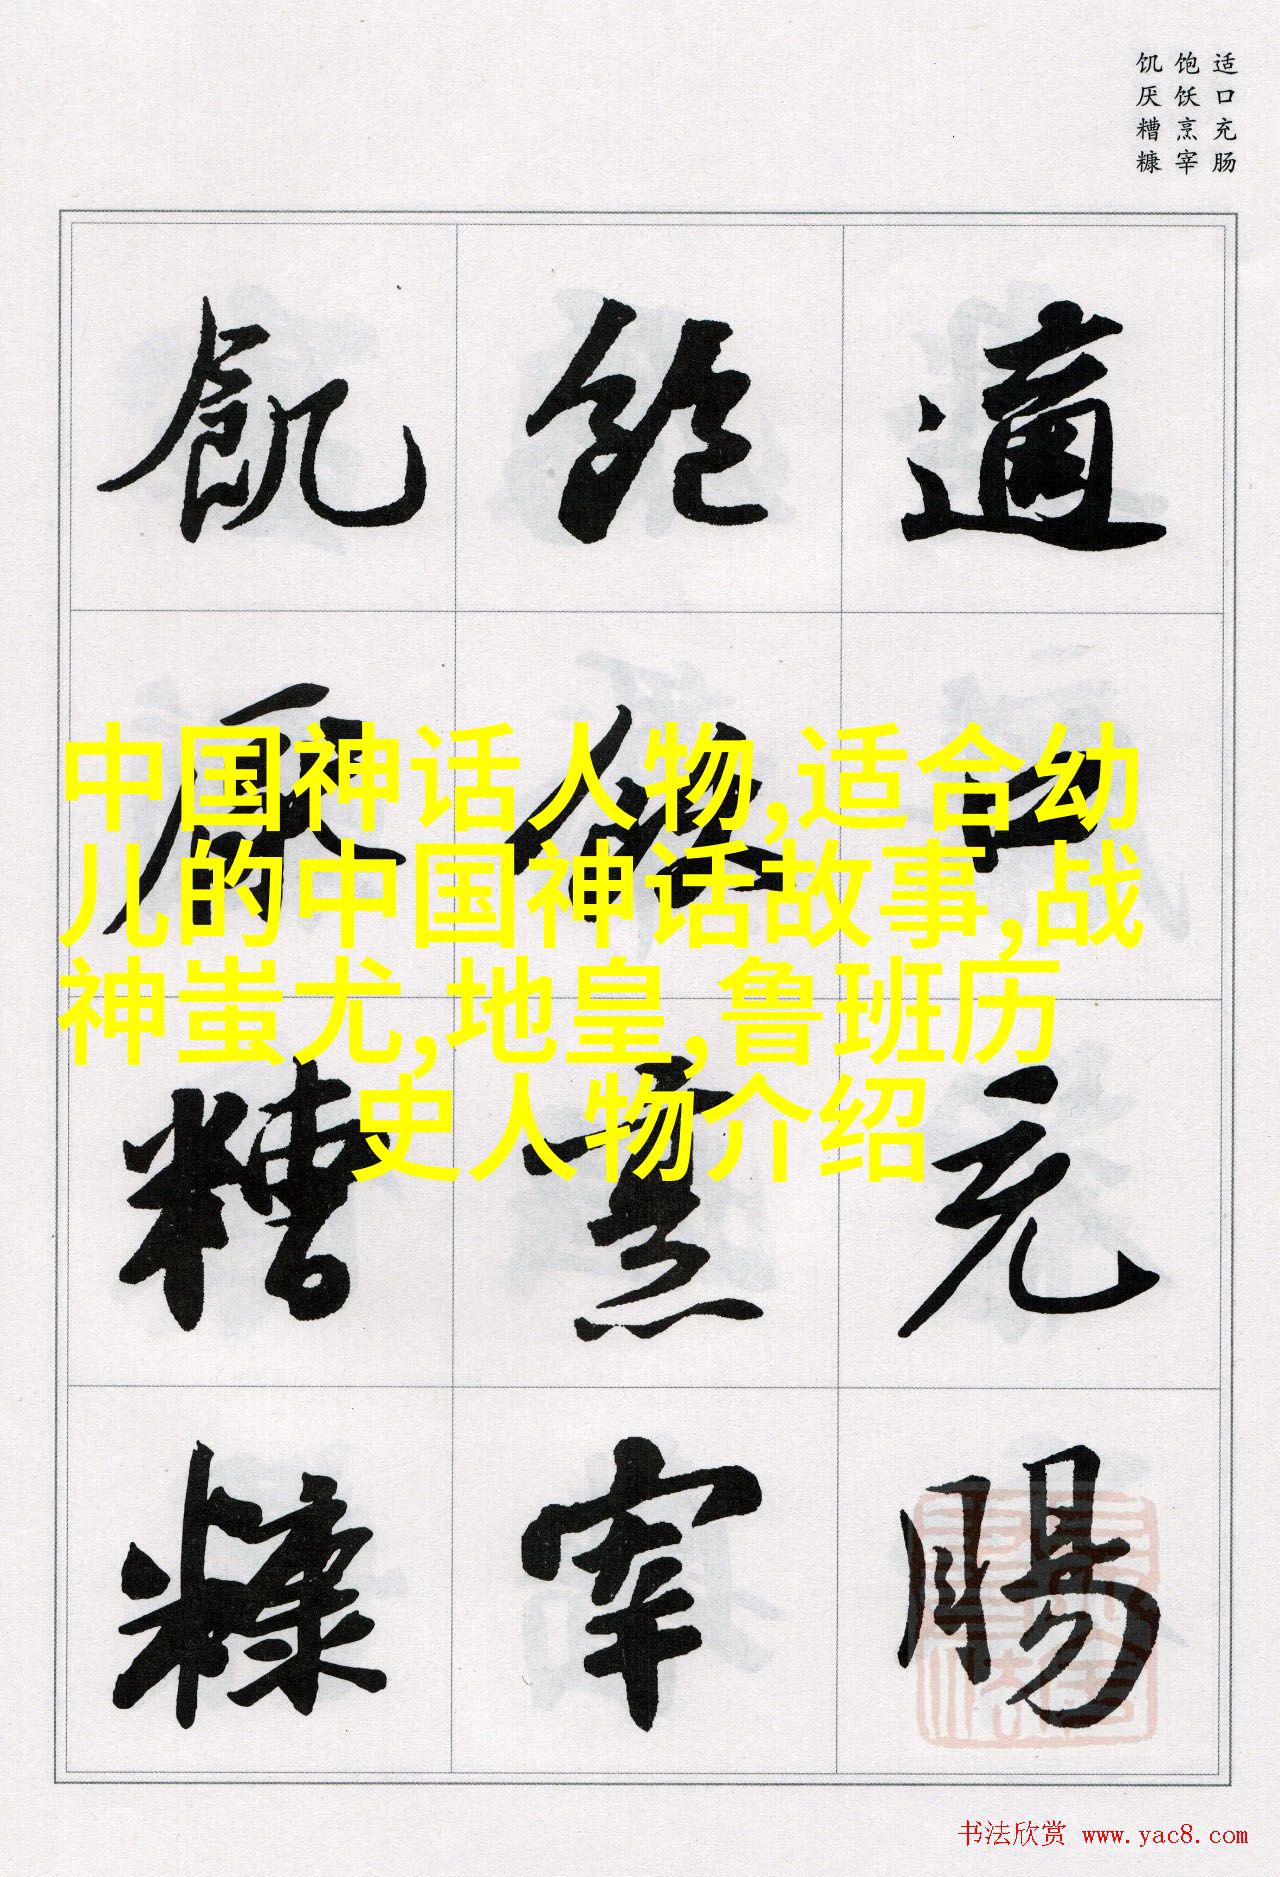 适口充肠
饱饫烹宰
饥厌糟糠
適口充腸
飽飫烹宰
飢厭糟糠
中国神话人物,适合幼
儿的中国神话故事,战
神蚩尤,地皇,鲁班历
史人物介绍
书法欣赏 www.yac8.com